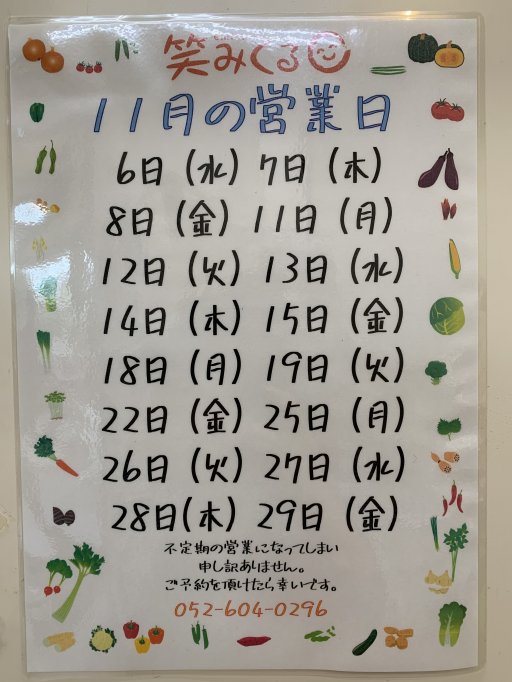 笑みくる
11月の営業日
6日（水）7日（木）
8日（金）11日（月）
12日（火）13日（水）
14日（木）15日（金）
18日（月）19日（火）
22日（金）25日（月）
26日（火）27日（水）
28日（木）29日（金）
不定期の営業になってしまい
申し訳ありません。
ご予約を頂けたら幸いです。
052-604-0296